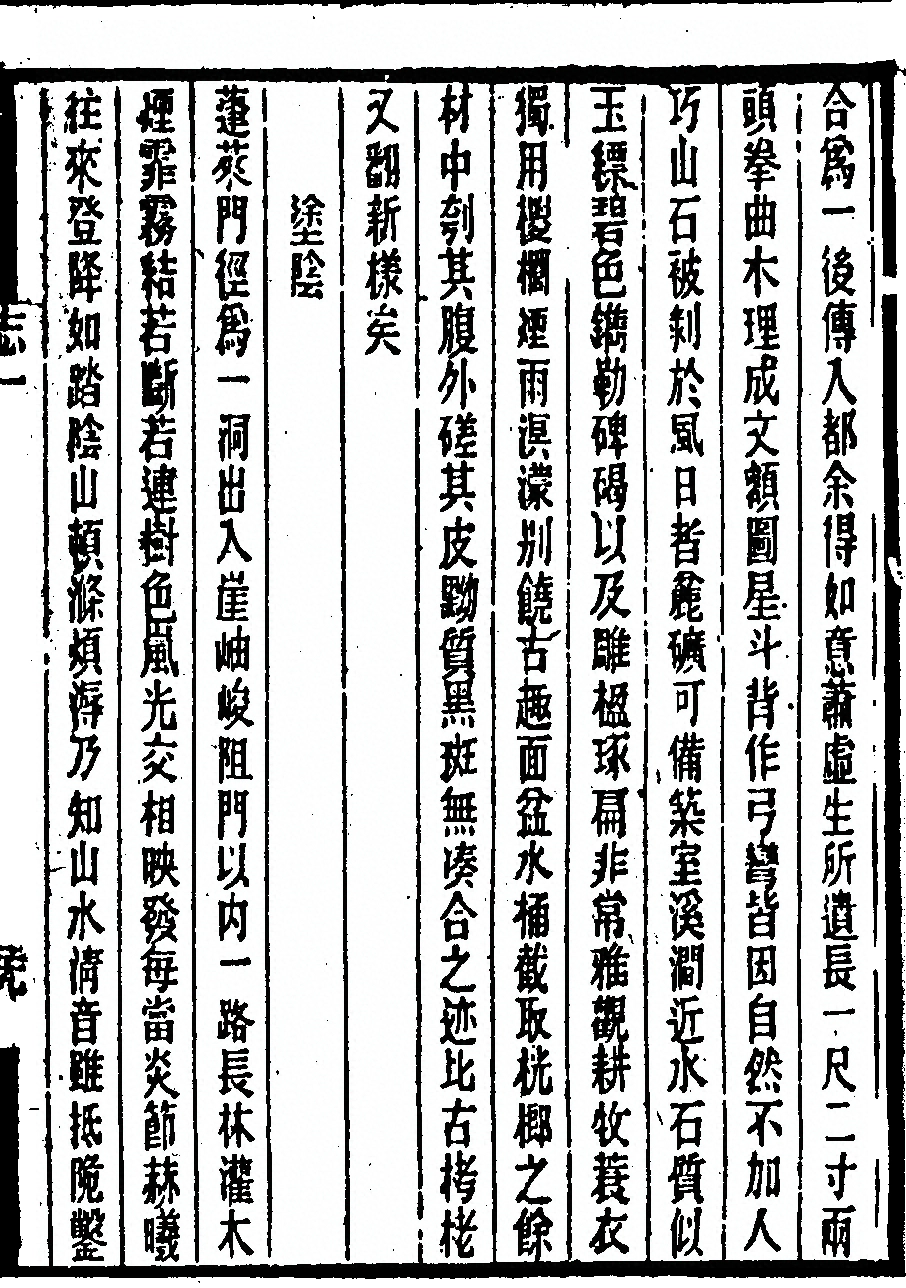 合爲一後傳入都余得如意蕭虛生所遺長一尺二寸兩
頭拳曲木理成文額圖星斗背作弓彎皆因自然不加人
巧山石被剝於風日者麄礦可備築室溪澗近水石質似
玉縹碧色鐫勒碑碣以及雕楹琢扁非常雅觀耕牧蓑衣
獨用椶櫚煙雨溟濛別饒古趣面盆水桶截取桄榔之餘
材中刳其腹外磋其皮黝質黑斑無凑合之迹比古栲栳
又翻新樣矣
塗陰
蓬萊門徑爲一洞出入崖岫峻阻門以内一路長林灌木
煙霏霧結若斷若連樹色嵐光交相映發每當炎節赫曦
往來登降如踏陰山頓滌煩溽乃知山水清音雖抵隗鑿
志一